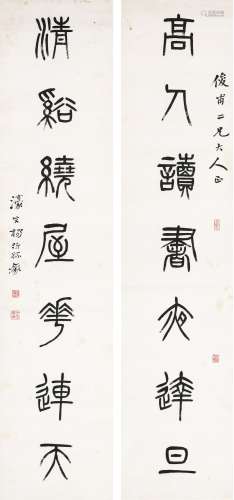 俊甫二兄大人正
高人讀書夜達旦
清谿繞屋花連天
濠叟楊沂孫